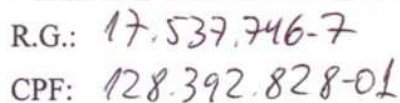 R.G.: 17.537.746-7
CPF: 128.392.828-01